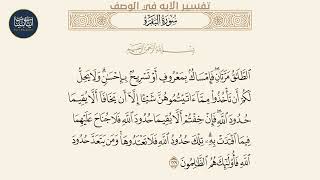 تفسير الآيه في الوصف
سُورَةُ البَقَرَةِ
بِسْمِ اللَّهِ الرَّحْمَٰنِ الرَّحِيمِ
الطَّلَاقُ مَرَّتَانِ فَإِمْسَاكٌ بِمَعْرُوفٍ أَوْ تَسْرِيحٌ بِإِحْسَانٍ وَلَا يَحِلُّ
لَكُمْ أَن تَأْخُذُوا مِمَّا آتَيْتُمُوهُنَّ شَيْئًا إِلَّا أَن يَخَافَا أَلَّا يُقِيمَا
حُدُودَ اللَّهِ فَإِنْ خِفْتُمْ أَلَّا يُقِيمَا حُدُودَ اللَّهِ فَلَا جُنَاحَ عَلَيْهِمَا
فِيمَا افْتَدَتْ بِهِ تِلْكَ حُدُودُ اللَّهِ فَلَا تَعْتَدُوهَا وَمَن يَتَعَدَّ حُدُودَ
اللَّهِ فَأُولَٰئِكَ هُمُ الظَّالِمُونَ ٢٢٩